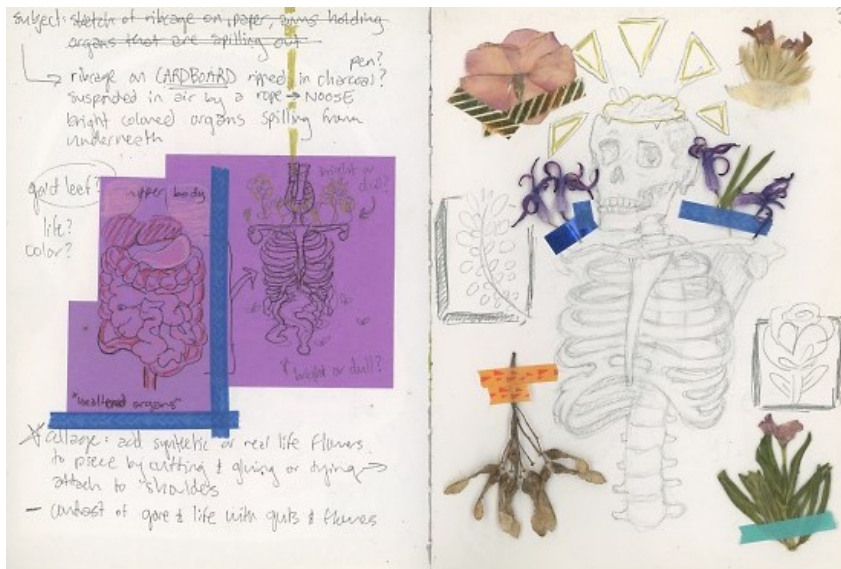 subject: sketch of ribcage on paper, arms holding
organs that are spilling out
pen?
ribcage on CARDBOARD ripped in charcoal?
suspended in air by a rope → NOOSE
bright colored organs spilling from
underneath
gold leef?
life?
color?
upper body
bright or
dull?
*bright or dull?
"organs"
collage: add synthetic or real life flowers
to piece by cutting & gluing or tying →
attach to shoulders
- contrast of gore & life with guts & flowers